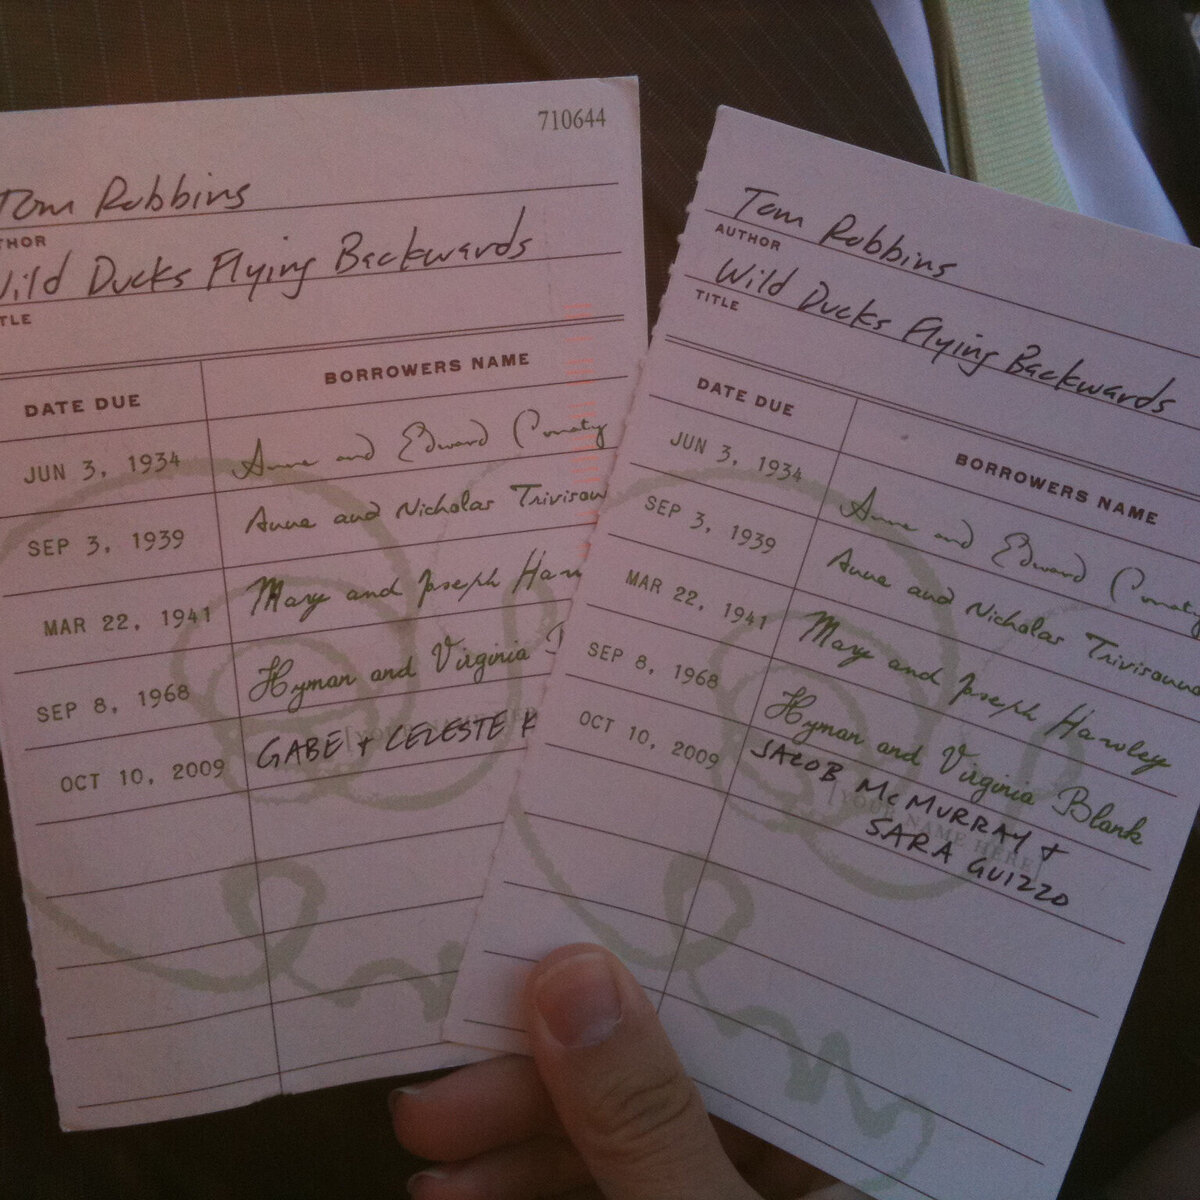 710644
Tom Robbins
THOR
Wild Ducks Flying Backwards
TLE
DATE DUE BORROWERS NAME
JUN 3, 1934 Anne and Edward
SEP 3, 1939 Anne and Nicholas
MAR 22, 1941 Mary and Joseph
SEP 8, 1968 Hyman and Virginia
OCT 10, 2009 GABE + CELESTE K
Tom Robbins
AUTHOR
Wild Ducks Flying Backwards
TITLE
DATE DUE BORROWERS NAME
JUN 3, 1934 Anne and Edward
SEP 3, 1939 Anne and Nicholas
MAR 22, 1941 Mary and Joseph Hawley
SEP 8, 1968 Hyman and Virginia Blank
OCT 10, 2009 JACOB MCMURRAY +
[YOUR NAME HERE]
SARA GUIZZO